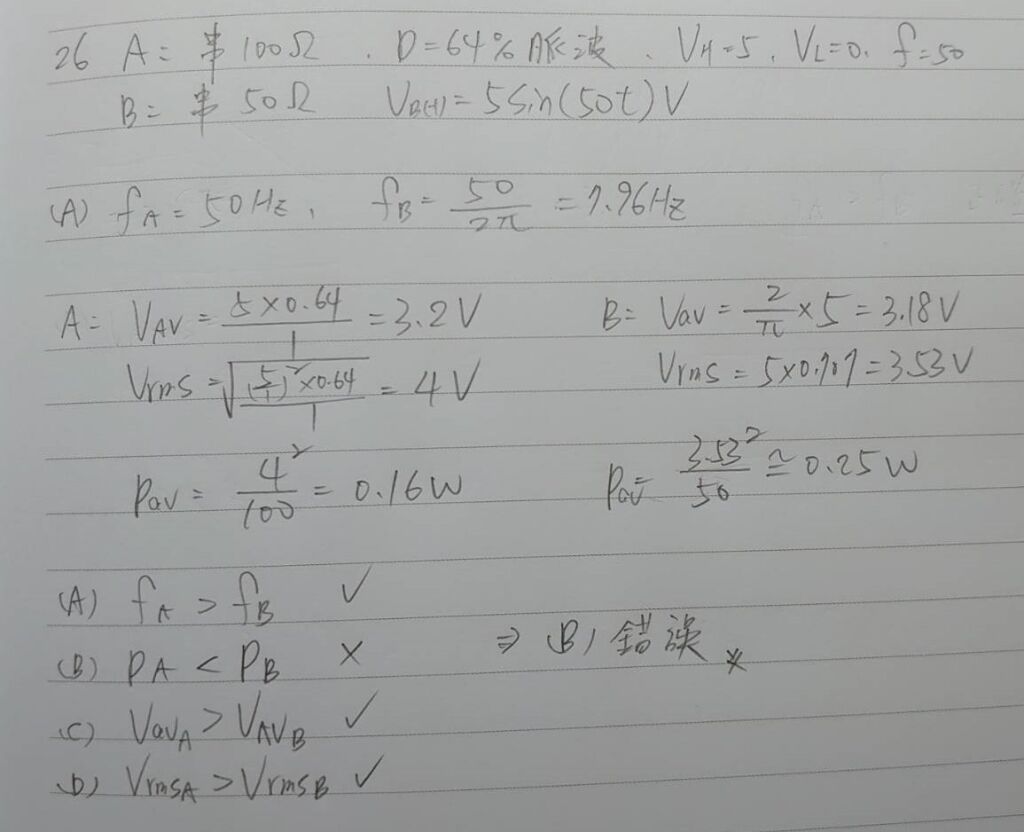 26 A: 串100Ω . D=64%脈波 . VH=5 , VL=0. f=50
B= 串 50Ω VB(t)=5Sin(50t)V
(A) fA=50Hz, fB=50/2π=7.96Hz
A= VAV=5×0.64/1=3.2V B= Vav=2/π×5=3.18V
Vrms=√((5/1)²×0.64/1)=4V Vrms=5×0.707=3.53V
Pav=4²/100=0.16W Pav=3.53²/50≃0.25W
(A) fA>fB ✓
(B) PA<PB × ⇒(B)錯誤*
(C) VavA>VAVB ✓
(D) VrmsA>VrmsB ✓